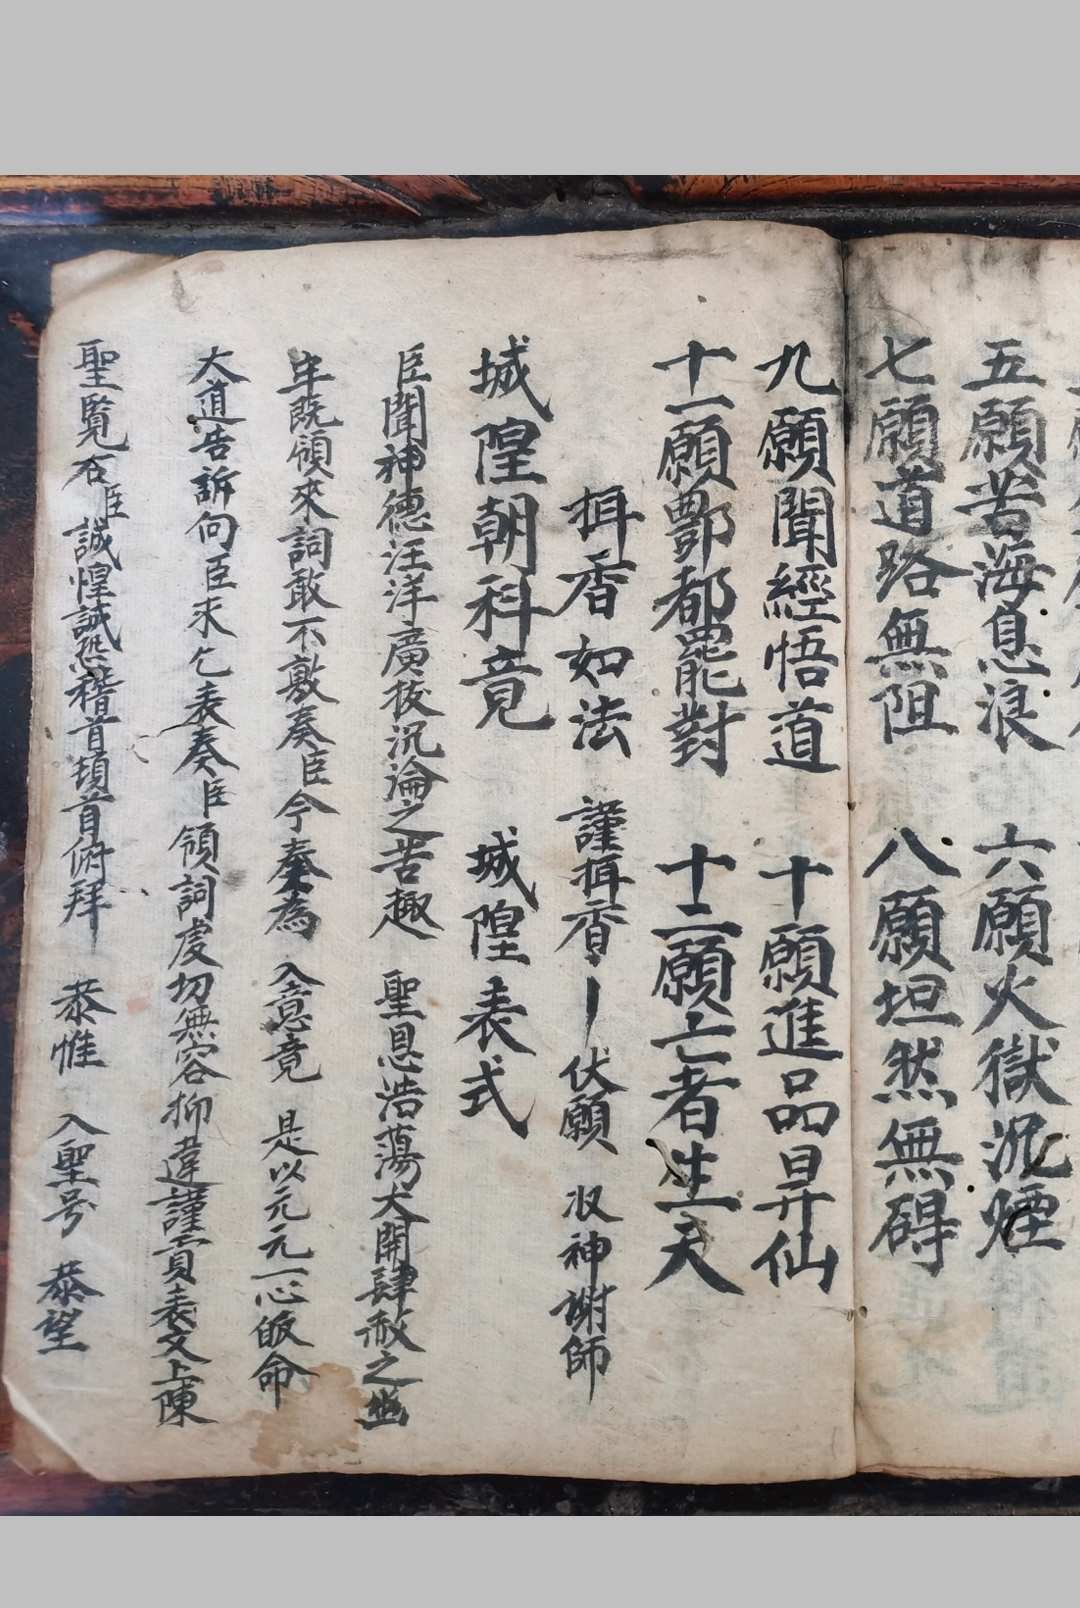 五願苦海息浪　六願火獄沉煙
七願道路無阻　八願坦然無碍
九願聞經悟道　十願進品昇仙
十一願酆都罷對　十二願亡者生天
揖香如法　謹揖香　伏願　收神謝師
城隍朝科竟　城隍表式
臣聞神德汪洋廣拔沉淪之苦趣　聖恩浩蕩大開肆赦之
年既領來詞敢不敷奏臣今奏為　入意竟　是以元元一心皈命
大道告訴向臣求乞表奏臣領詞虔切無容抑違謹賫表文上陳
聖覧 臣誠惶誠恐稽首頓首俯拜　恭惟　入聖号　恭望